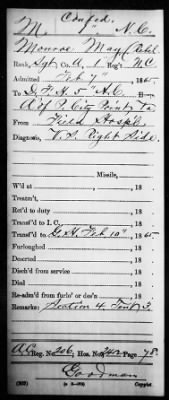 Confed.
M. 1" N.C.
Monroe May
Rank, Sgt Co. A, 1 Reg't N.C.
Admitted Feb 7" 1865.
To D.F.H. 5" A.C.
A of P. City Point Va
From Field Hosp'l
Diagnosis, V.S. Right Side.
Missile,
W'd at , 18
Treatm't, , 18
Ret'd to duty , 18
Transf'd to I. C. , 18
Transf'd to G.H. Feb 10" , 1865
Furloughed , 18
Deserted , 18
Disch'd from service , 18
Died , 18
Re-adm'd from furlo' or des'n , 18
Remarks: Section 4, Tent 3
A.C. Reg. No. 206, Hos. No. Page 78.
Goodman
Copyist.